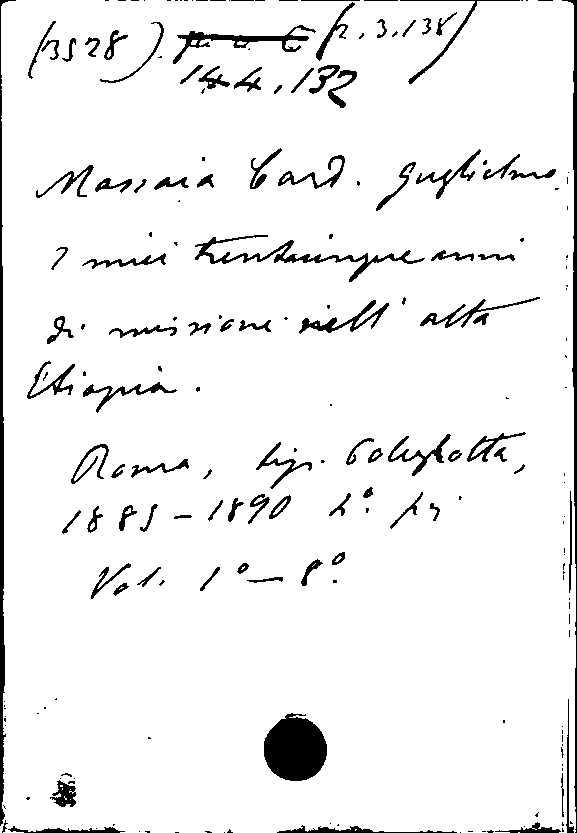 (3528). (2.3.138)
144.132
Massaia Card. Guglielmo
I miei trentacinque anni
di missione nell' alta
Etiopia.
Roma, tip. Poliglotta,
1885-1890
Vol. 1º-8º